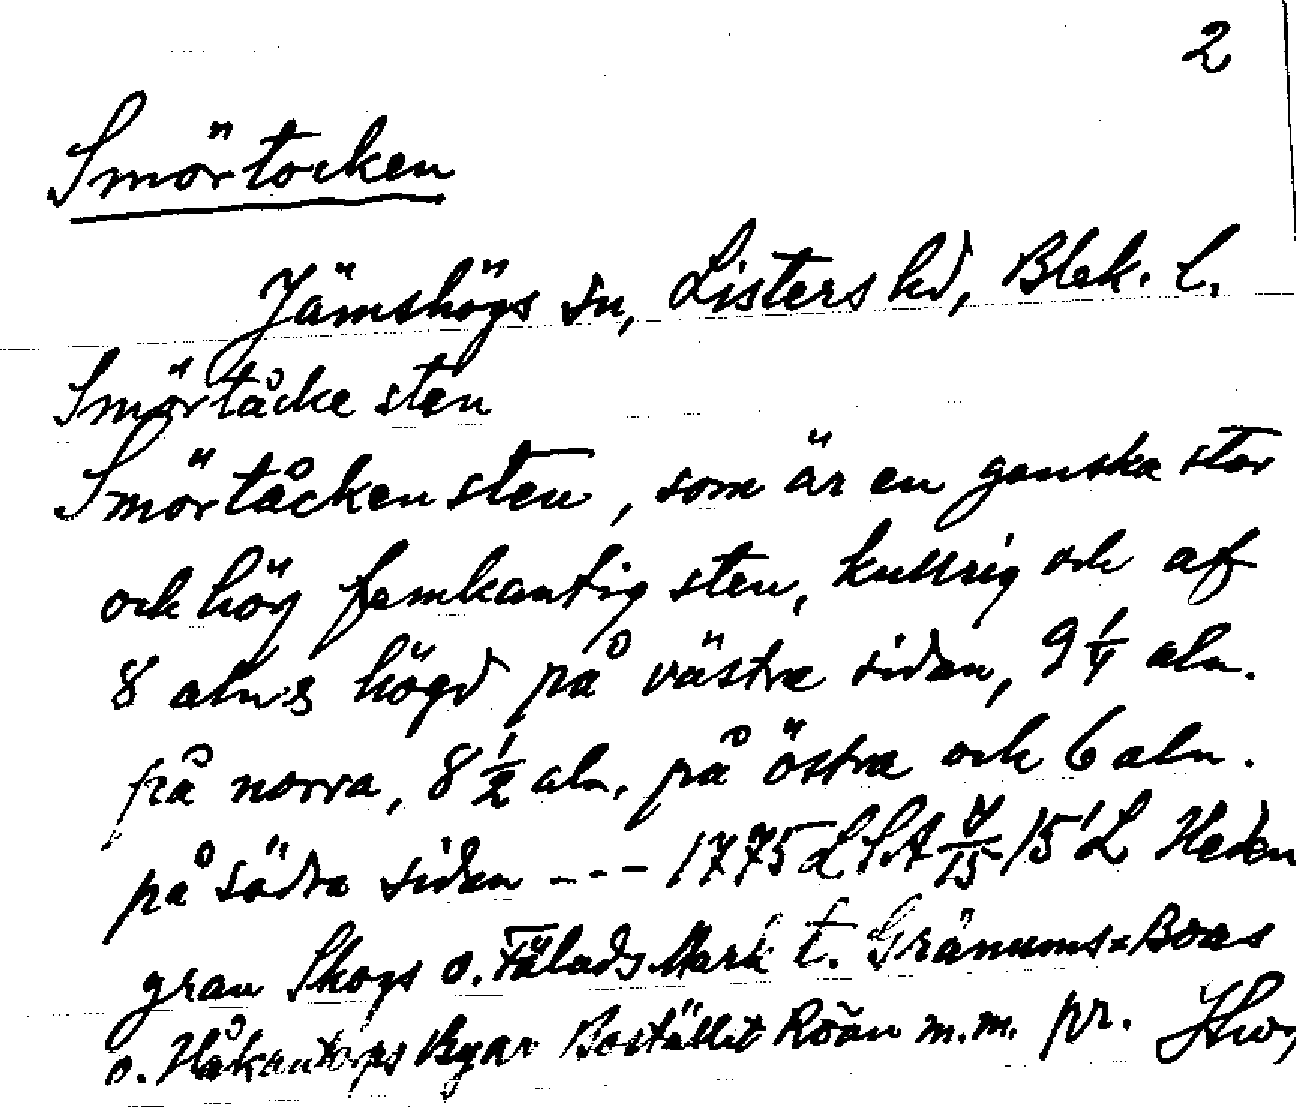 2
Smörtocken
Jämshögs sn, Listers hd, Blek. l.
Smörtåcke sten
Smörtåcken sten, som är en ganska stor
och hög femkantig sten, kullrig och af
8 alns högd på västra sidan, 9 1/4 aln.
på norra, 8 1/2 aln. på östra och 6 aln.
på södra sidan --- 1775 LSA 15 L
gran Skogs o. Fälads Mark t. Gränums-Boas
o. Håkantorps Byar Bostället Röän m.m. pr.